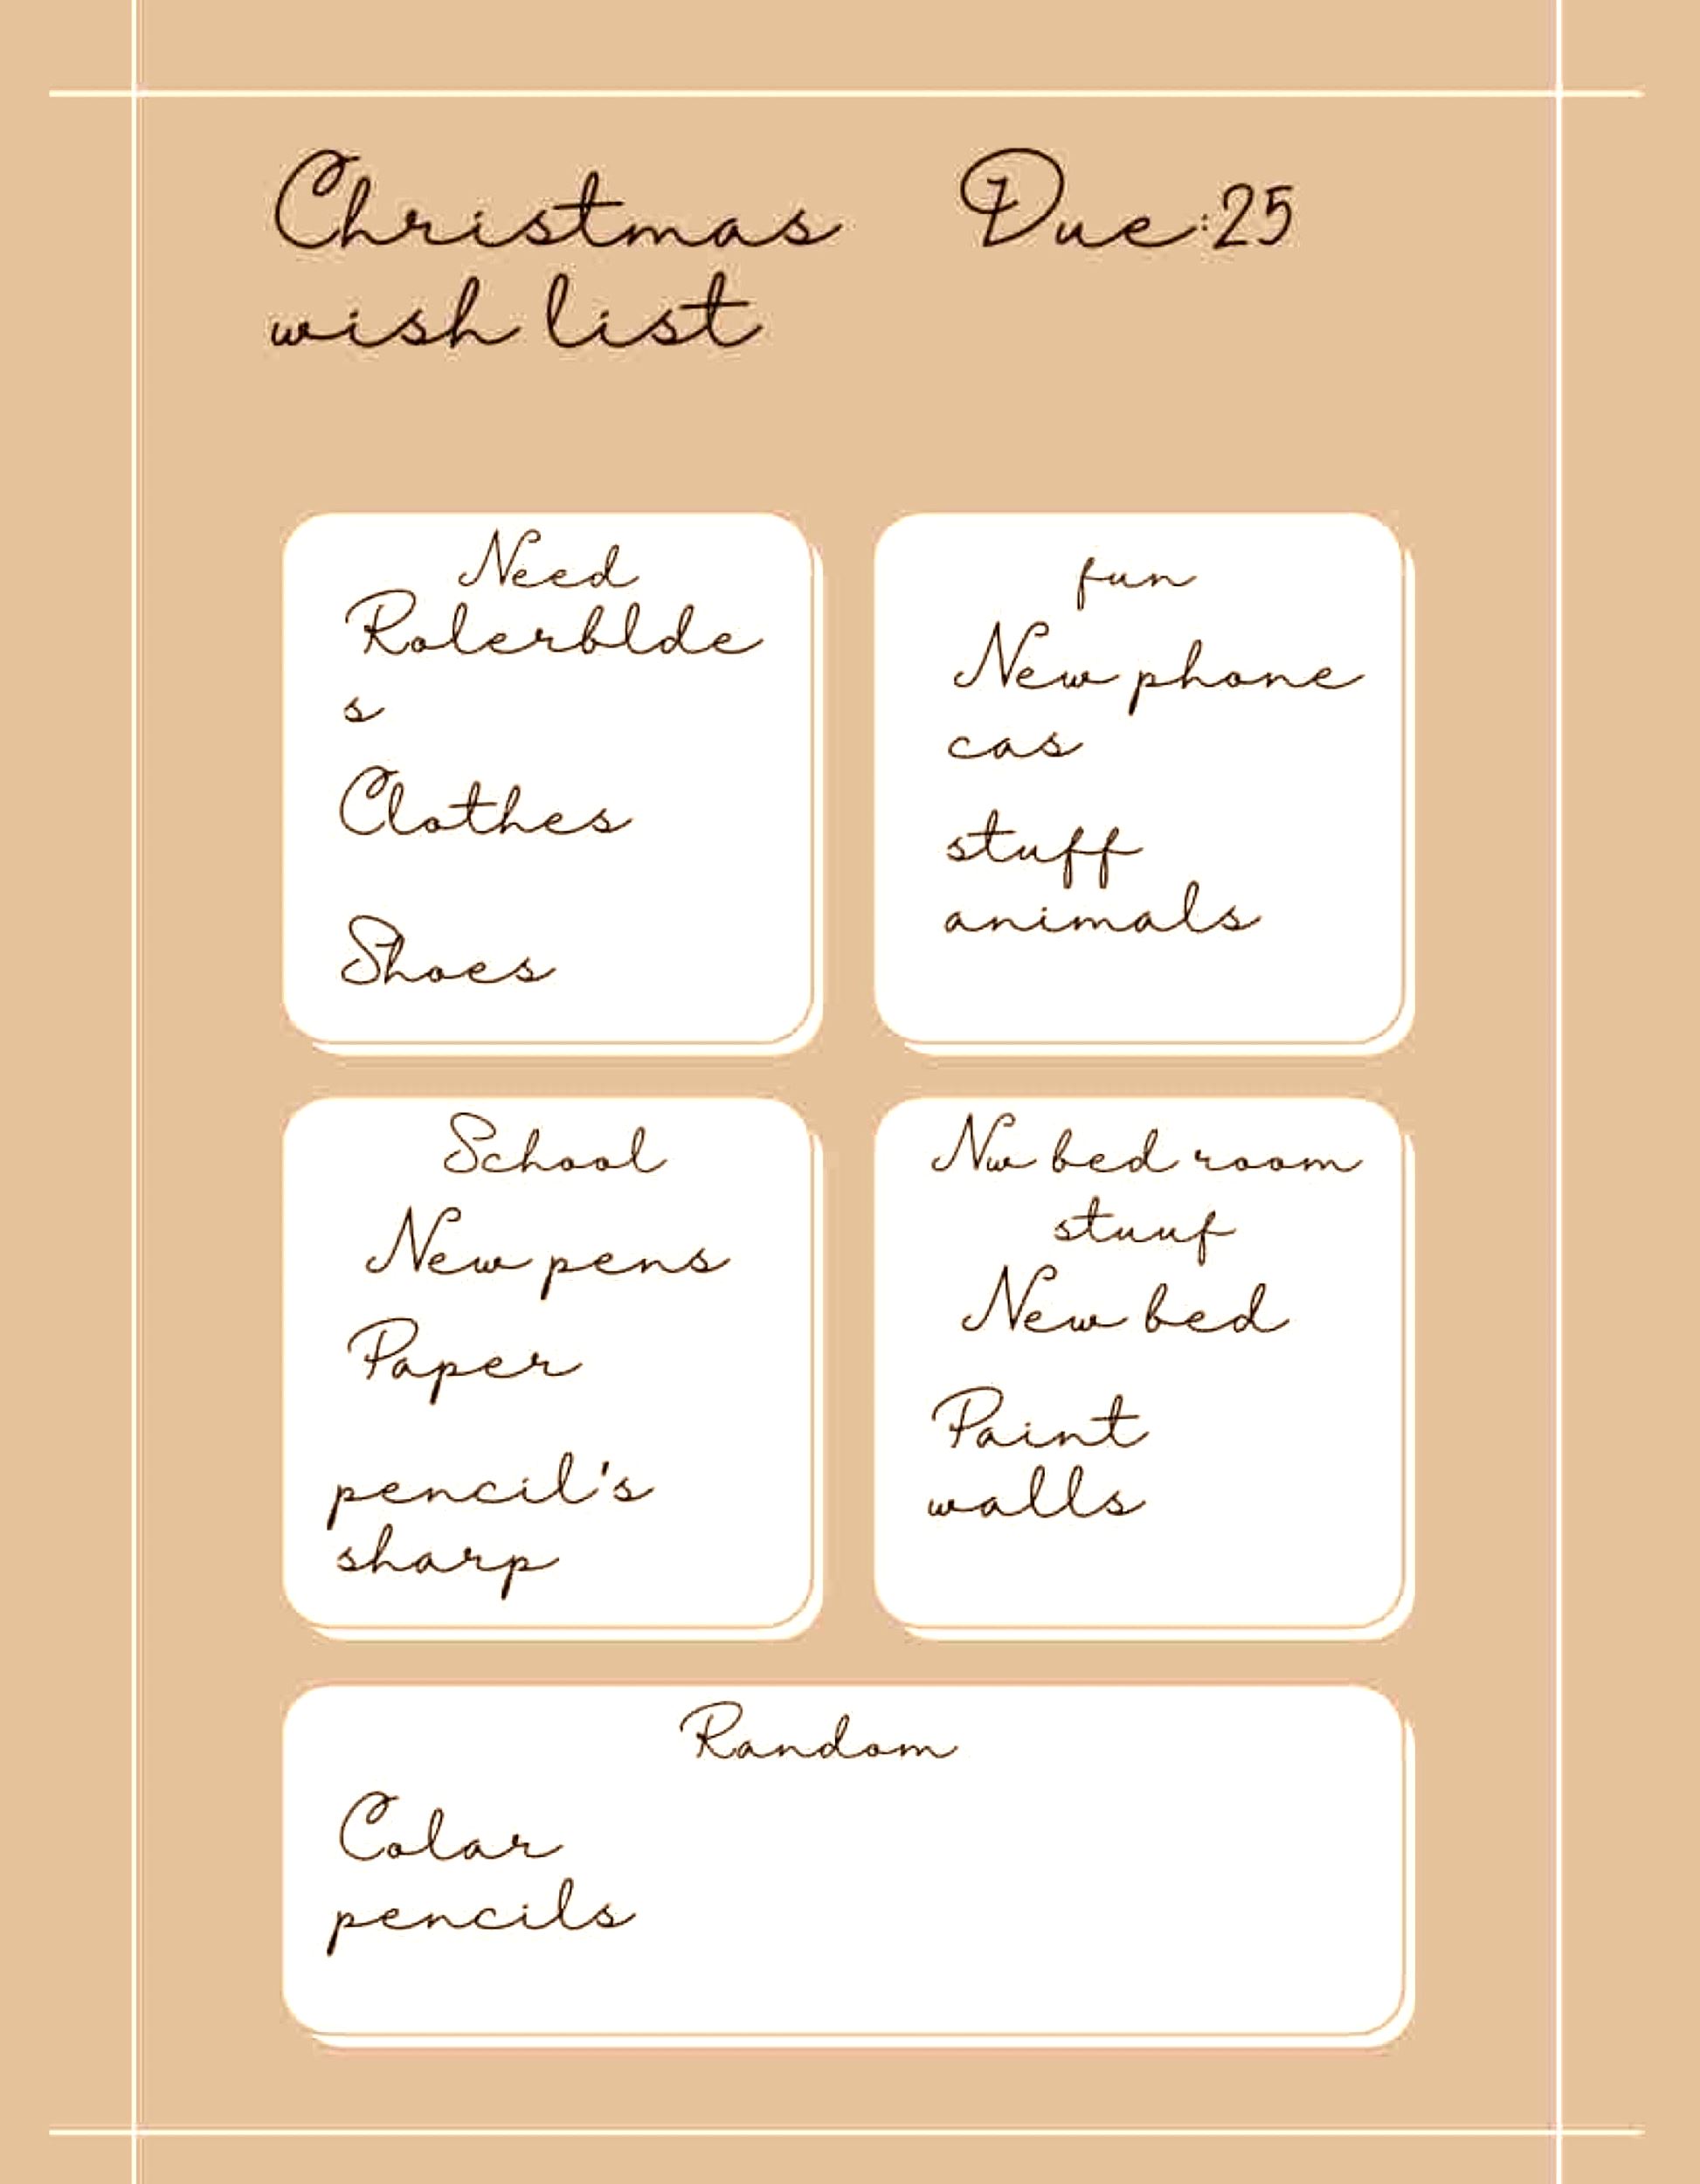 Christmas
wish list
Due:25
Need
Rolerblde
s
Clothes
Shoes
fun
New phone
cas
stuff
animals
School
New pens
Paper
pencil's
sharp
Nw bed room
stuuf
New bed
Paint
walls
Random
Color
pencils